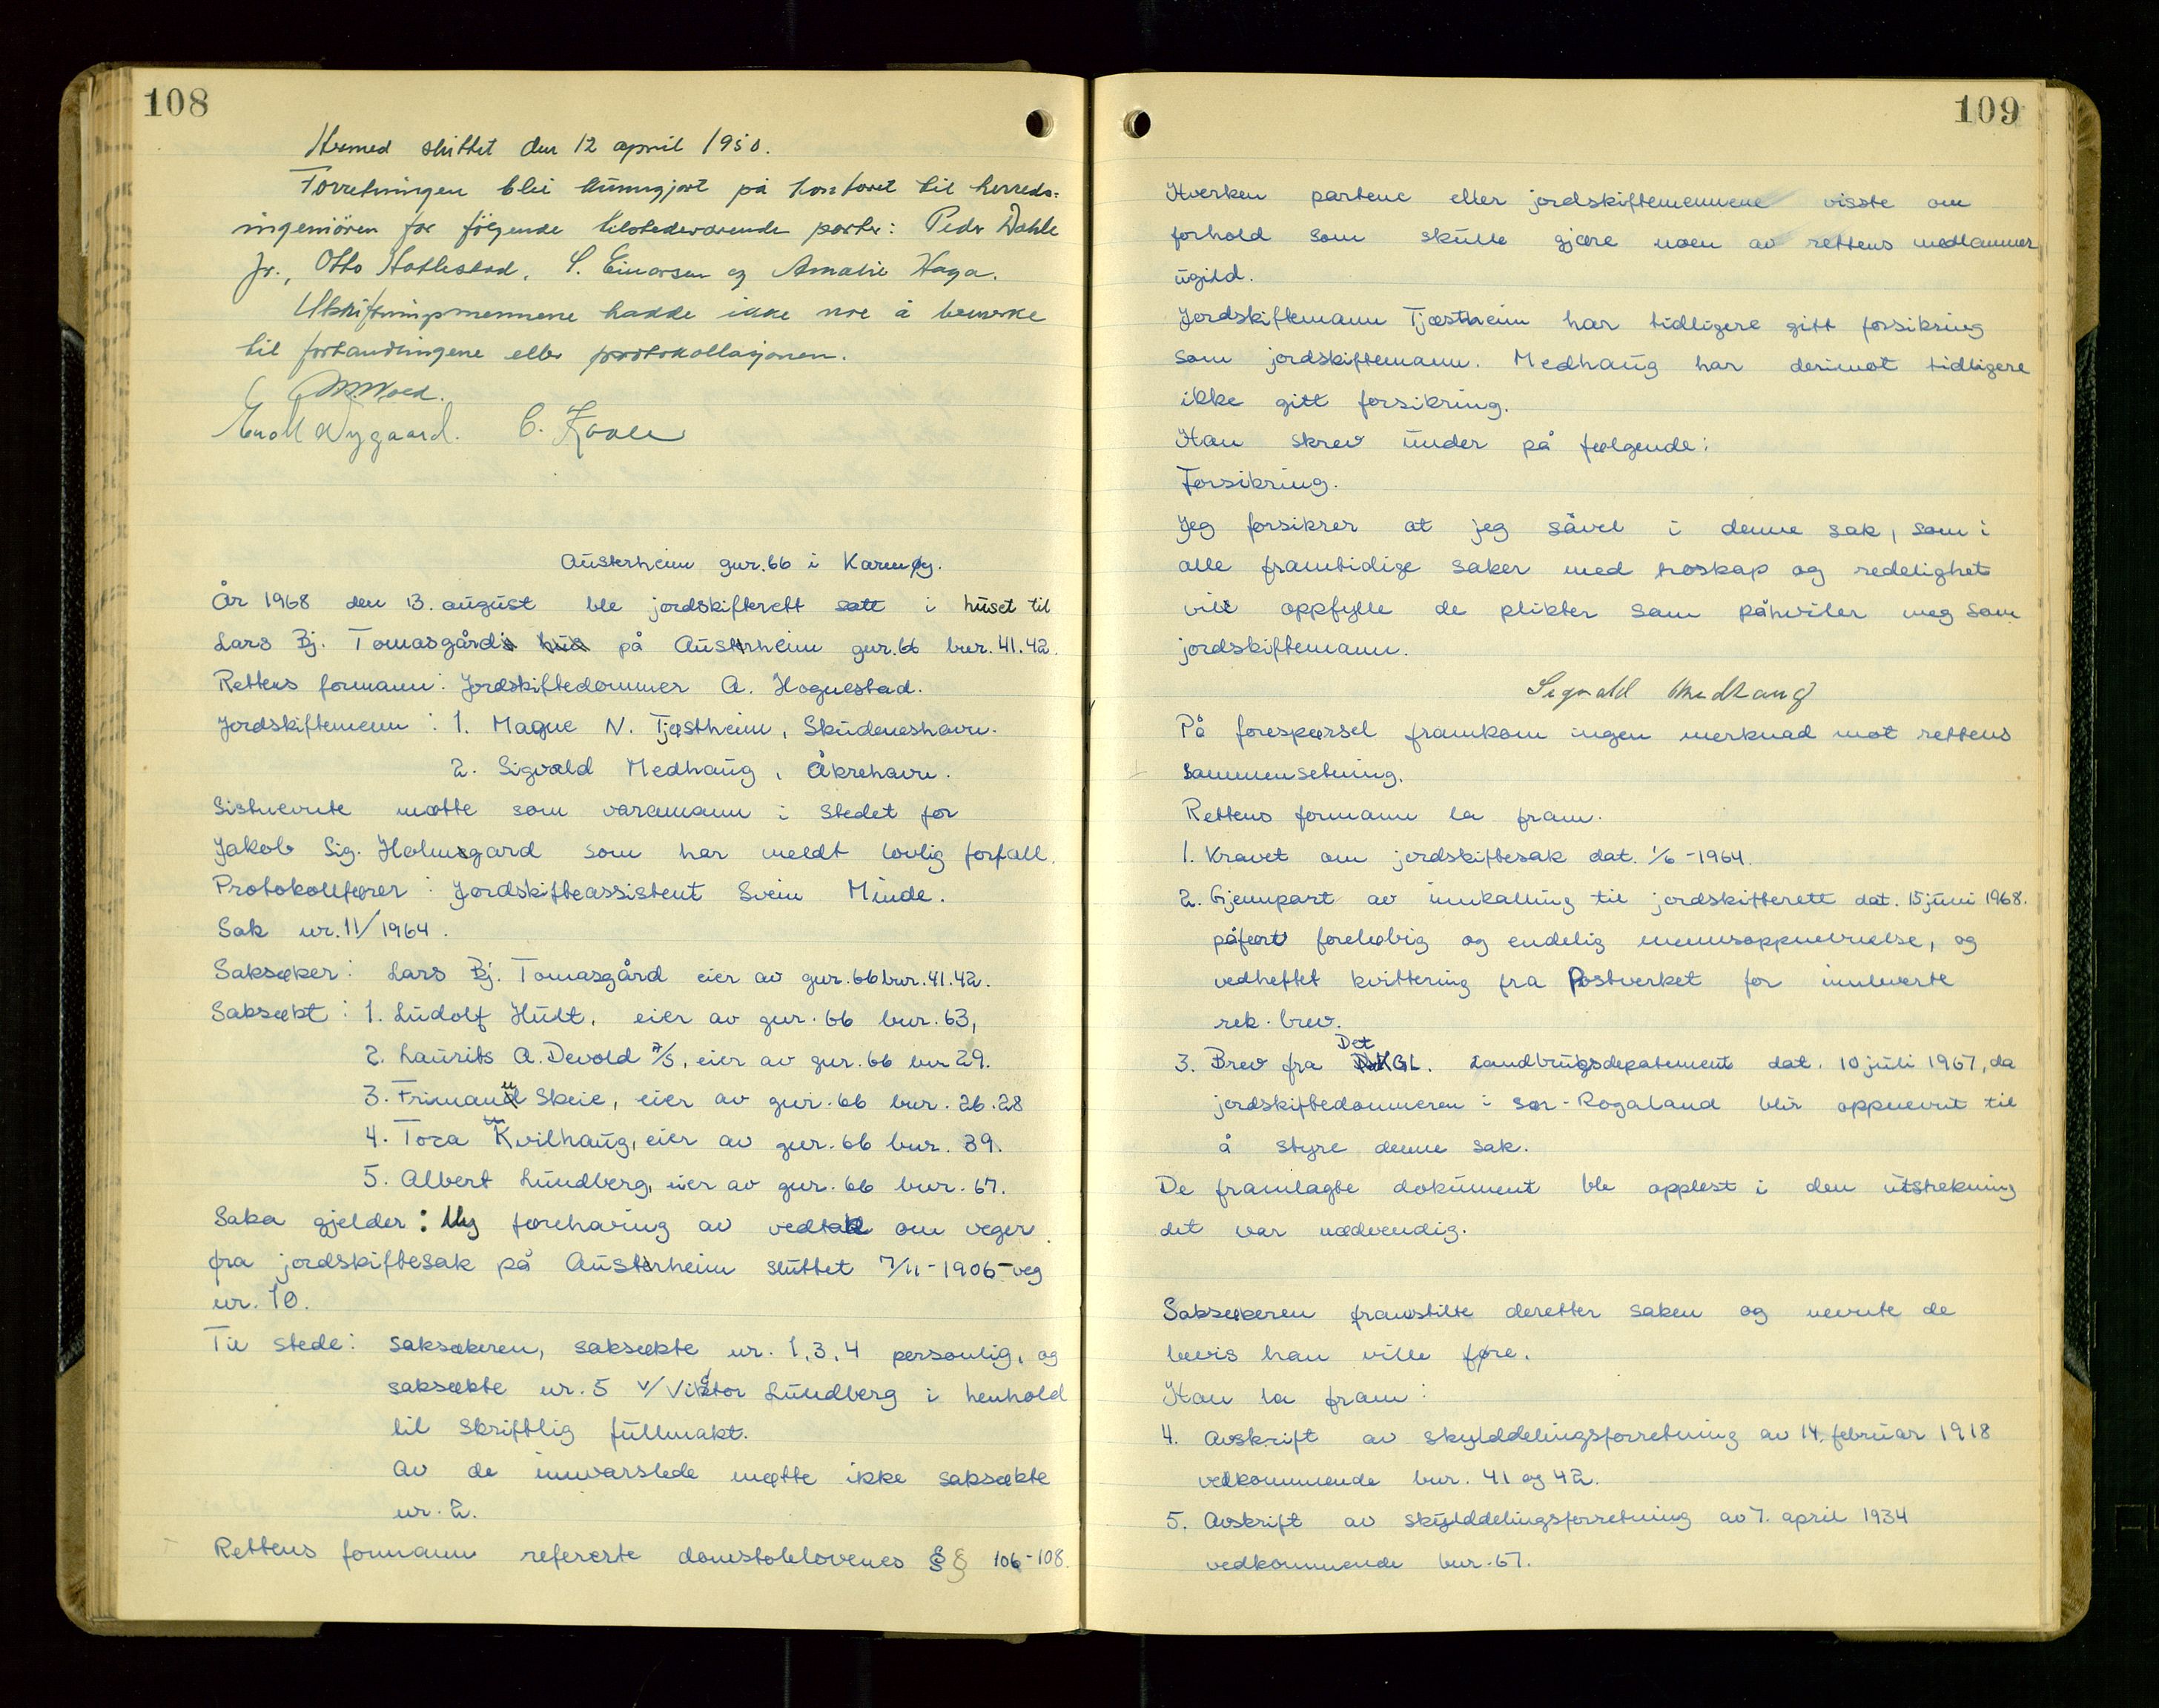 108
Hermed sluttet den 12 april 1950.
Forretningen blei kunngjort på kontoret til herreds-
ingeniören for fölgende tilstedeværende parter: Peder Dahle
jr., Otto Hatlestad, S. Einarsen og Amalie Haga.
Utskiftningsmennene hadde ikke noe å bemerke
til forhandlingene eller protokollasjonen.
Nygaard. C.
Austerheim gnr. 66 i Karmøy.
År 1968 den 13. august ble jordskifterett satt i huset til
Lars Bj. Tomasgårds hus på Austerheim gnr. 66 bnr. 41. 42.
Rettens formann: Jordskiftedommer A. Hognestad.
Jordskiftemenn: 1. Magne N. Tjøstheim, Skudeneshavn.
2. Sigvald Medhaug, Åkrehavn.
Sistnevnte møtte som varamann i stedet for
Jakob Sig. Holmsgard som har meldt lovlig forfall.
Protokollfører: Jordskifteassistent Svein Minde.
Sak nr. 11/1964.
Saksøker: Lars Bj. Tomasgård eier av gnr. 66 bnr. 41. 42.
Saksøkt: 1. Ludolf Hult, eier av gnr. 66 bnr. 63,
2. Laurits A. Devold A/S, eier av gnr. 66 bnr 29.
3. Frimann Skeie, eier av gnr. 66 bnr. 26. 28
4. Tora Kvilhaug, eier av gnr. 66 bnr. 39.
5. Albert Lundberg, eier av gnr. 66 bnr. 67.
Saka gjelder: Ny forehaving av vedtak om veger
fra jordskiftesak på Austerheim sluttet 7/11-1906-veg
nr. 10.
Til stede: saksøkeren, saksøkte nr. 1, 3, 4 personlig, og
saksøkte nr. 5 v/ Viktor Lundberg i henhold
til skriftlig fullmakt.
Av de innvarslede møtte ikke saksøkte
nr. 2.
Rettens formann refererte domstollovenes §§ 106-108.
109
Hverken partene eller jordskiftemennene visste om
forhold som skulle gjøre noen av rettens medlemmer
ugild.
Jordskiftemann Tjøstheim har tidligere gitt forsikring
som jordskiftemann. Medhaug har derimot tidligere
ikke gitt forsikring.
Han skrev under på følgende:
Forsikring.
Jeg forsikrer at jeg såvel i denne sak, som i
alle framtidige saker med troskap og redelighet
vil oppfylle de plikter som påhviler meg som
jordskiftemann.
Sigvald Medhaug
På forespørsel framkom ingen merknad mot rettens
sammensetning.
Rettens formann la fram.
1. Kravet om jordskiftesak dat. 1/6-1964.
2. Gjennpart av innkalling til jordskifterett dat. 15 juni 1968.
påført foreløbig og endelig mennsoppnevnelse, og
vedheftet kvittering fra Postverket for innleverte
rek. brev.
3. Brev fra Det KGL. Landbrugsdepatement dat. 10 juli 1967, da
jordskiftedommeren i Sør-Rogaland blir oppnevnt til
å styre denne sak.
De framlagte dokument ble opplest i den utstrekning
det var nødvendig.
Saksøkeren framstilte deretter saken og nevnte de
bevis han ville føre.
Han la fram:
4. Avskrift av skylddelingsforretning av 14. februar 1918
vedkommende bnr. 41 og 42.
5. Avskrift av skylddelingsforretning av 7. april 1934
vedkommende bnr. 67.